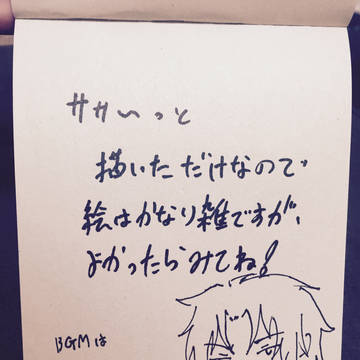 ササいっと
描いただけなので
絵はかなり雑ですが、
よかったらみてね!
BGMは